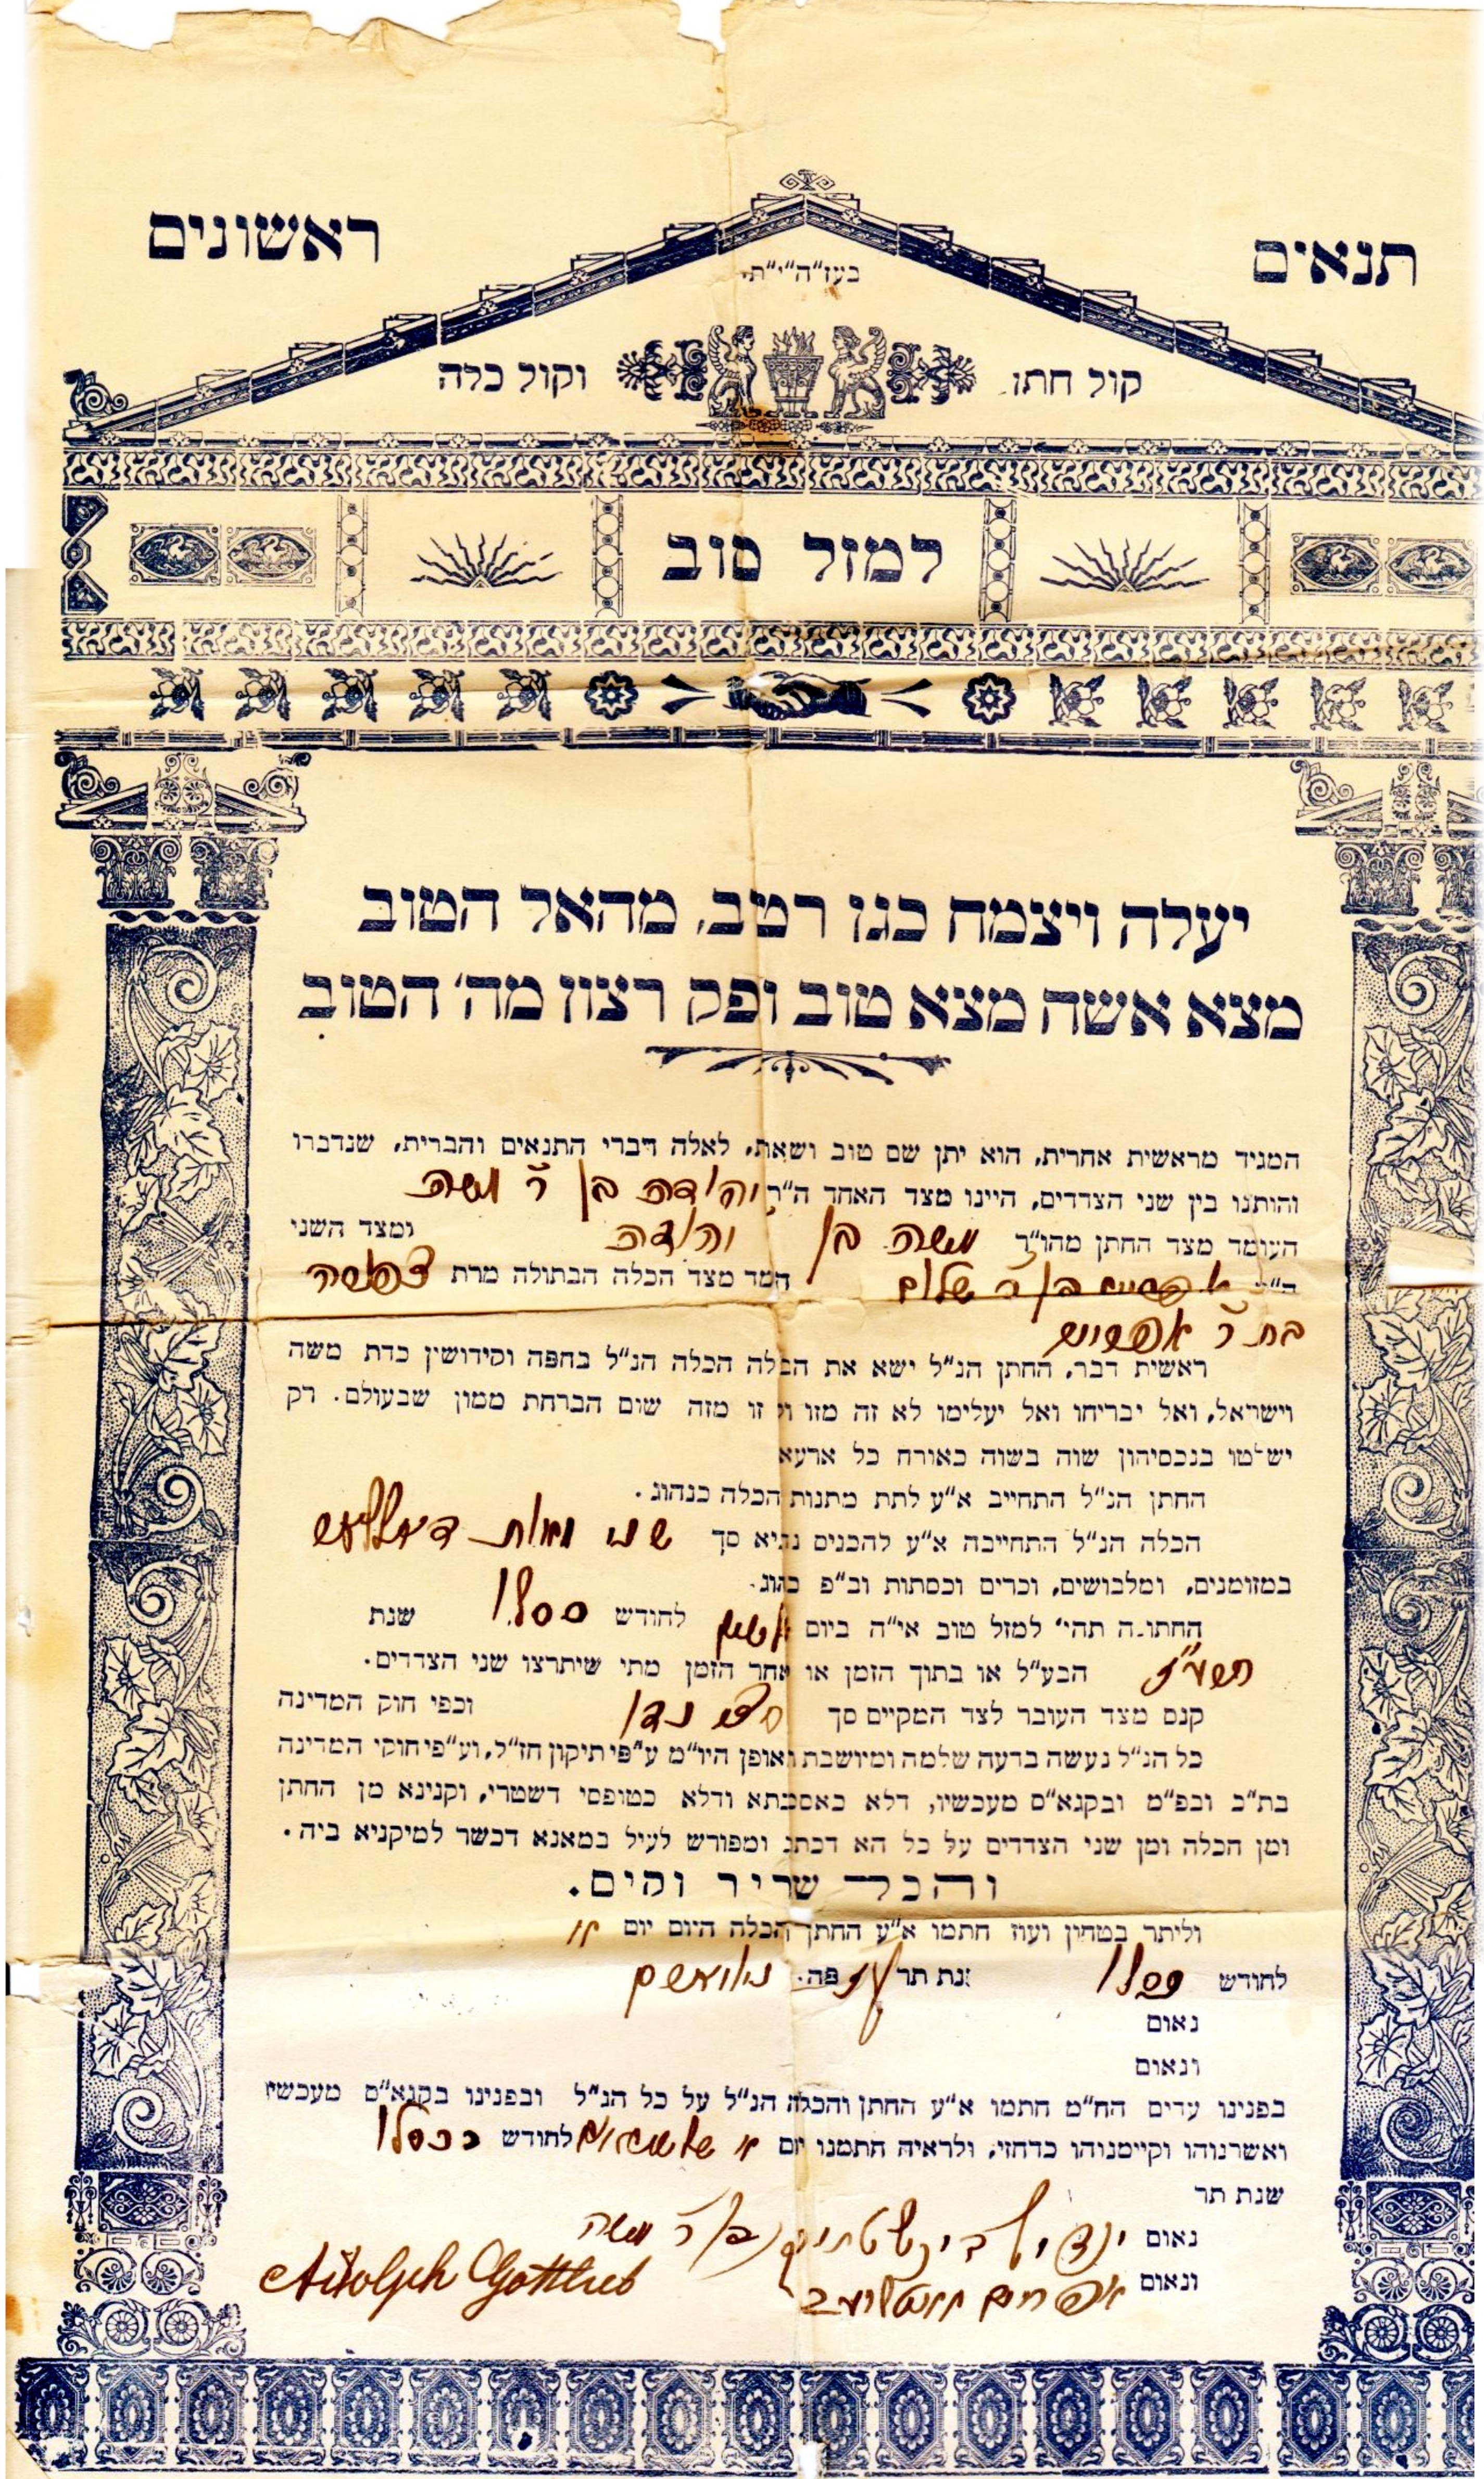 תנאים ראשונים
בעז״ה״י״ת׳
קול חתן וקול כלה
למזל טוב
יעלה ויצמח כגן רטב, מהאל הטוב
מצא אשה מצא טוב ופק רצון מה׳ הטוב
המגיד מראשית אחרית, הוא יתן שם טוב ושאת, לאלה דברי התנאים והברית, שנדברו
והותנו בין שני הצדדים, היינו מצד האחד ה״ר יהודה בן ר׳ משה
העומד מצד החתן מהו״ר משה בן יהודה ומצד השני
ה״ר אפרים בן ר׳ שלום העד מצד הכלה הבתולה מרת
בת ר׳ אפרים
ראשית דבר, החתן הנ״ל ישא את הכלה הכלה הנ״ל בחפה וקידושין כדת משה
וישראל, ואל יבריחו ואל יעלימו לא זה מזו ולא זו מזה שום הברחת ממון שבעולם. רק
ישלטו בנכסיהון שוה בשוה כאורח כל ארעא
החתן הנ״ל התחייב א״ע לתת מתנות הכלה כנהוג.
הכלה הנ״ל התחייבה א״ע להכנים נדיא סך שני מאות דאללער
במזומנים, ומלבושים, וכרים וכסתות וב״פ כהוג.
החתונה תהי׳ למזל טוב אי״ה ביום לחודש כסלו שנת
הבע״ל או בתוך הזמן או אחר הזמן מתי שיתרצו שני הצדדים.
קנם מצד העובר לצד המקיים סך חצי נדן וכפי חוק המדינה
כל הנ״ל נעשה בדעה שלמה ומיושבת ואופן היו״מ ע״פי תיקון חז״ל, וע״פי חוקי המדינה
בת״כ ובפ״מ ובקגא״ס מעכשיו, דלא כאסמכתא ודלא כטופסי דשטרי, וקנינא מן החתן
ומן הכלה ומן שני הצדדים על כל הא דכתב ומפורש לעיל במאנא דכשר למיקניא ביה.
והכל שריר וקים.
וליתר בטחון ועוז חתמו א״ע החתן והכלה היום יום
לחודש כסלו שנת תר פה.
נאום
ונאום
בפנינו עדים הח״מ חתמו א״ע החתן והכלה הנ״ל על כל הנ״ל ובפנינו בקגא״ס מעכשיו
ואשרנוהו וקיימנוהו כדחזי, ולראיה חתמנו יום לחודש כסלו
שנת תר
נאום בן ר׳ משה
ונאום אפרים גאטליעב Adolph Gottlieb